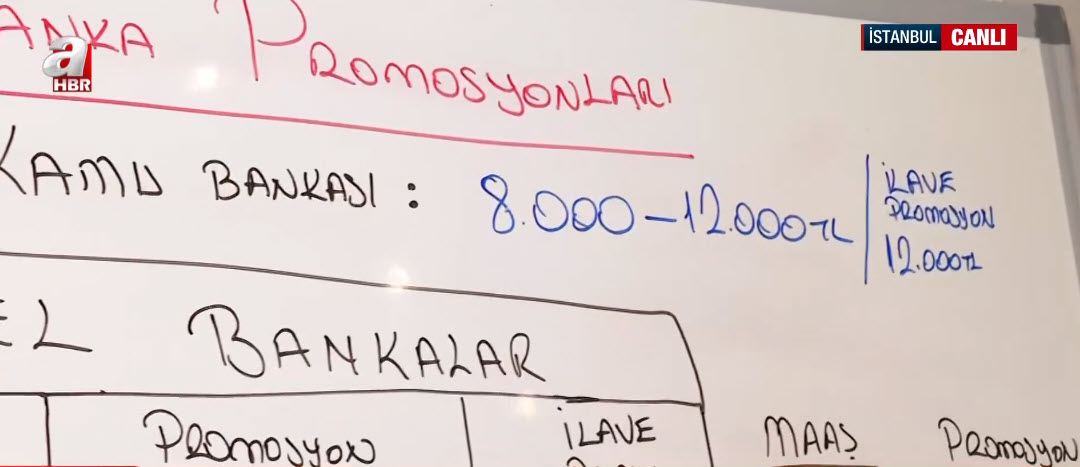 a
HBR
İSTANBUL CANLI
ANKA PROMOSYONLARI
KAMU BANKASI : 8.000 – 12.000 TL
İLAVE
PROMOSYON
12.000 TL
EL BANKALAR
PROMOSYON İLAVE MAAŞ PROMOSYON